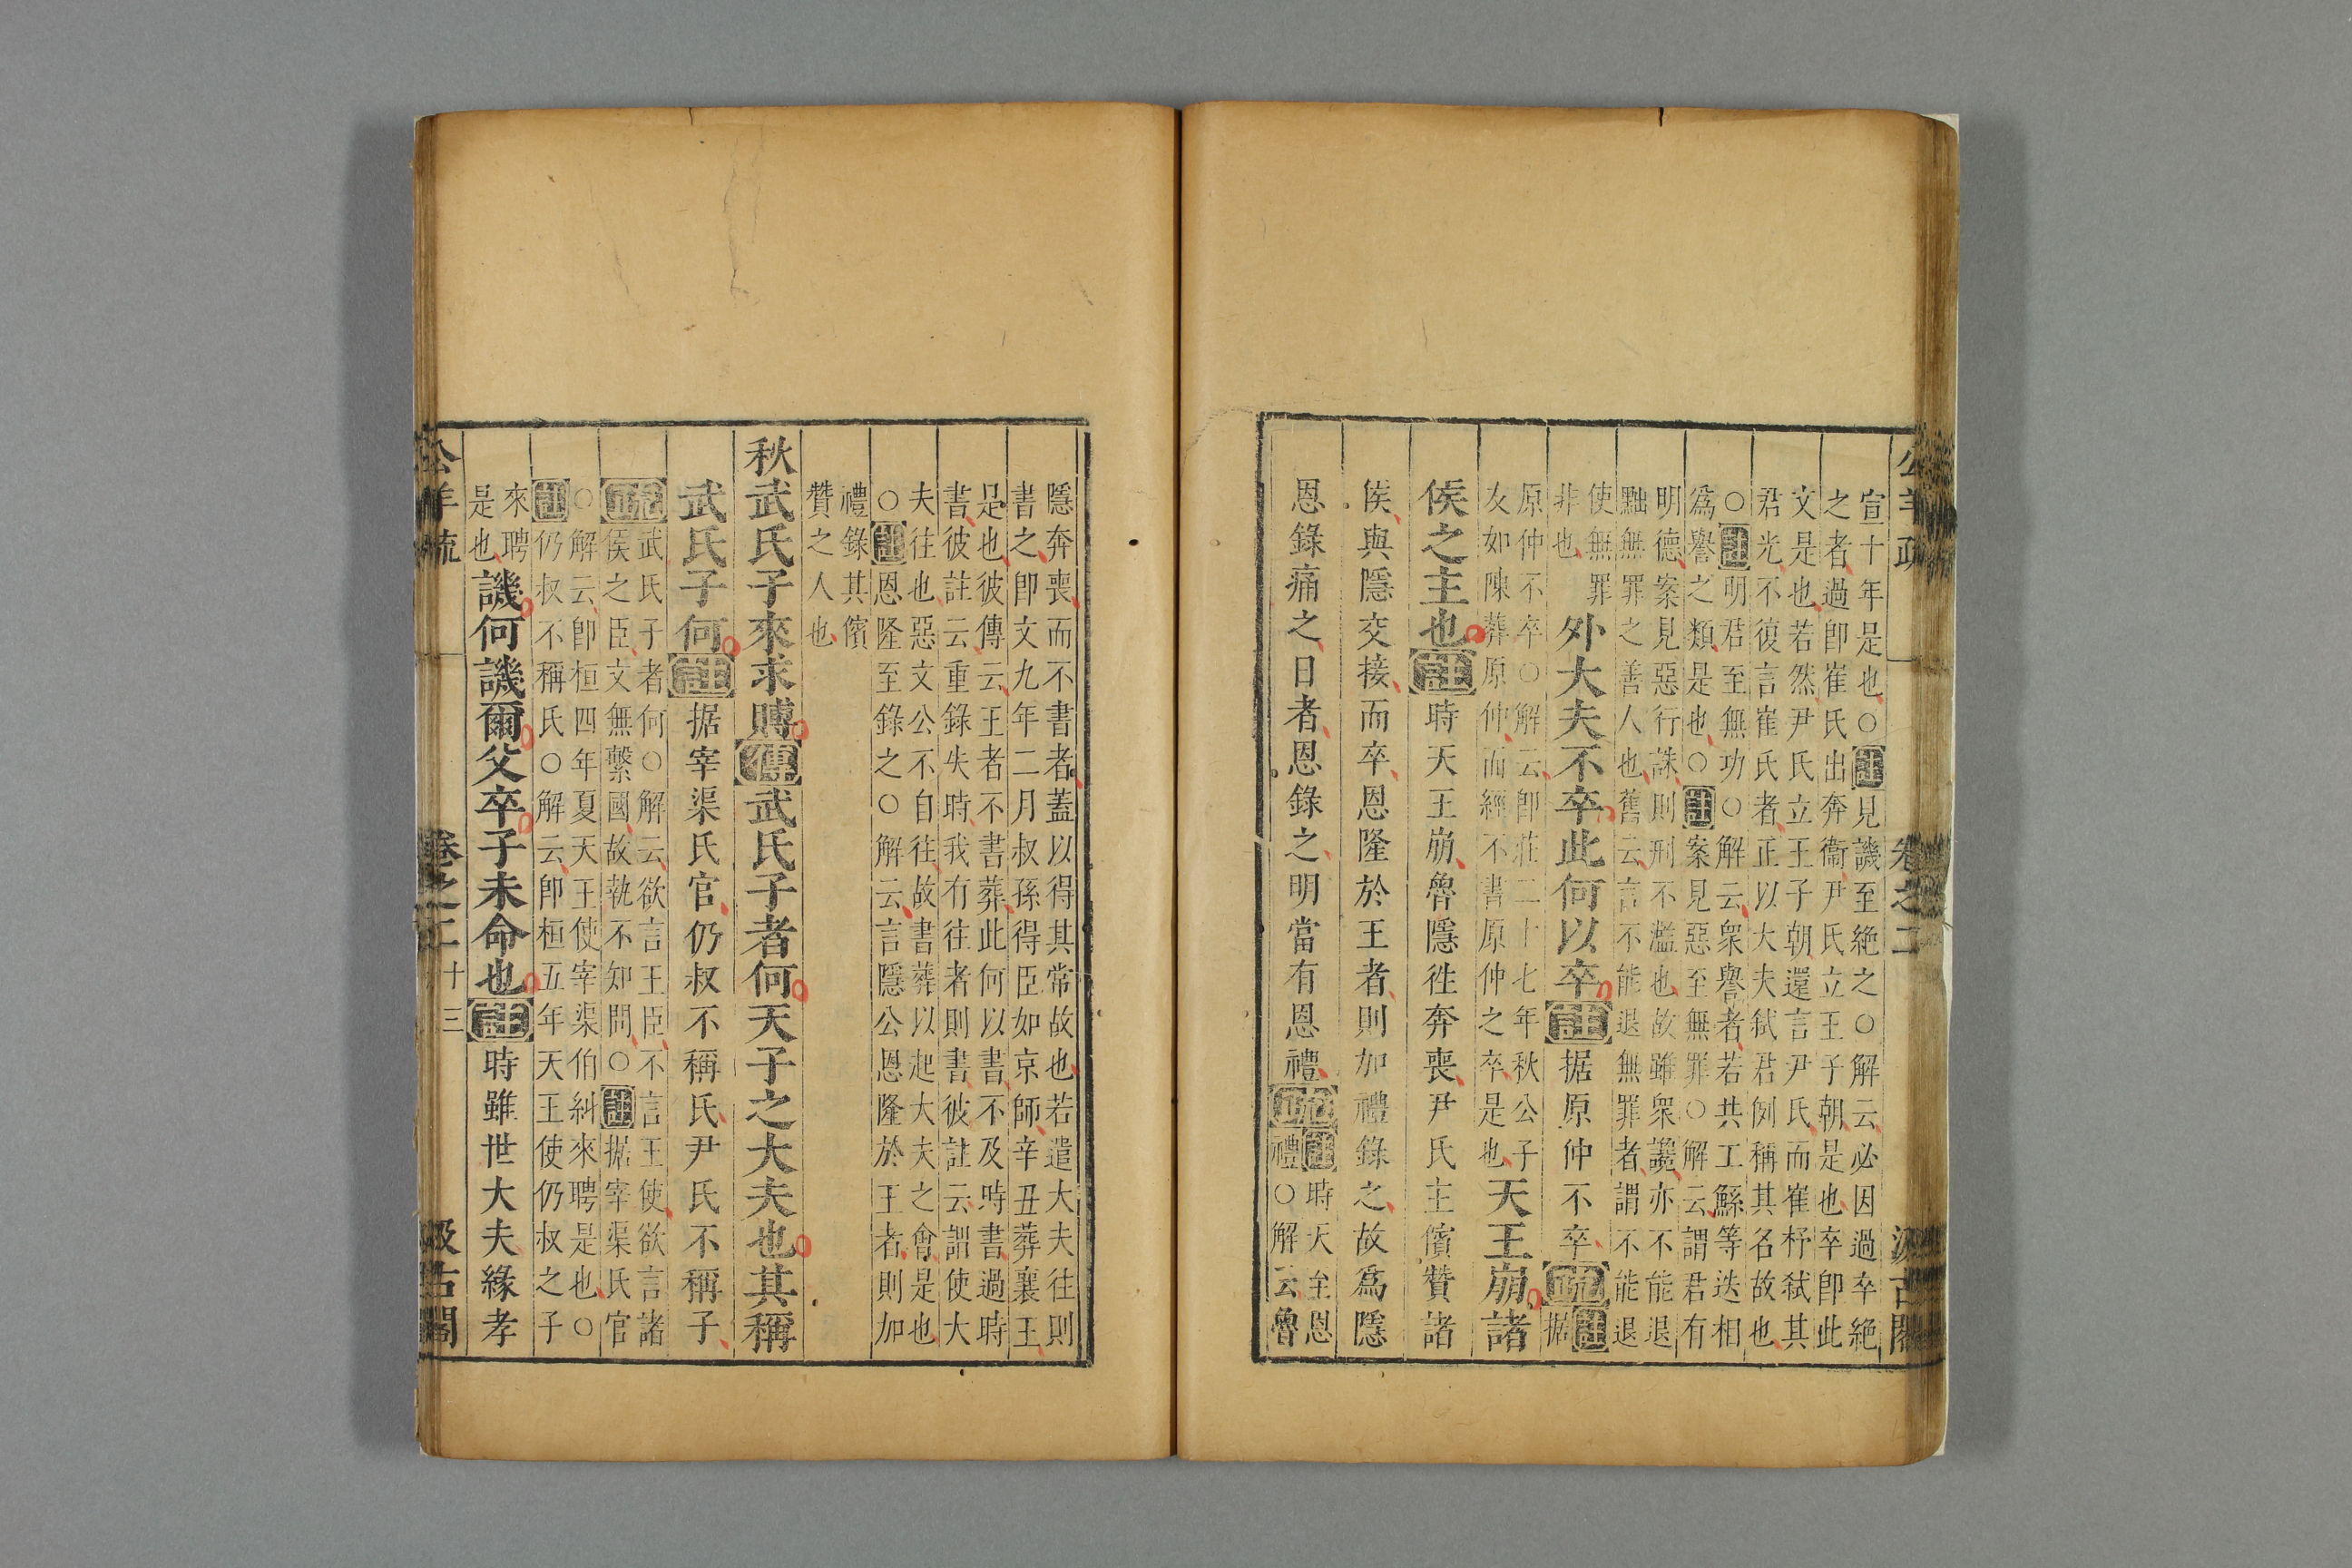 公羊疏
卷之二
汲古閣
宣十年是也○註見譏至絶之○解云必因過卒絶
之者過卽崔氏出奔衞尹氏立王子朝是也卒卽此
文是也若然尹氏立王子朝還言尹氏而崔杼弒其
君光不復言崔氏者正以大夫弒君例稱其名故也
○註明君至無功○解云衆譽者若共工鯀等迭相
爲譽之類是也○註案見惡至無罪○解云謂君有
明德案見惡行誅則刑不濫也故雖衆讒亦不能退
黜無罪之善人也舊云言不能退無罪者謂不能退
使無罪
非也
外大夫不卒此何以卒註据原仲不卒疏註据
原仲不卒○解云卽莊二十七年秋公子
友如陳葬原仲而經不書原仲之卒是也
天王崩諸
侯之主也註時天王崩魯隱徃奔喪尹氏主儐贊諸
侯與隱交接而卒恩隆於王者則加禮錄之故爲隱
恩錄痛之日者恩錄之明當有恩禮疏註時天至恩
禮○解云魯
隱奔喪而不書者蓋以得其常故也若遣大夫往則
書之卽文九年二月叔孫得臣如京師辛丑葬襄王
是也彼傳云王者不書葬此何以書不及時書過時
書彼註云重錄失時我有往者則書彼註云謂使大
夫往也惡文公不自往故書葬以起大夫之會是也
○註恩隆至錄之○解云言隱公恩隆於王者則加
禮錄其儐
贊之人也
秋武氏子來求賻傳武氏子者何天子之大夫也其稱
武氏子何註据宰渠氏官仍叔不稱氏尹氏不稱子
疏武氏子者何○解云欲言王臣不言王使欲言諸
侯之臣文無繫國故執不知問○註据宰渠氏官
○解云卽桓四年夏天王使宰渠伯糾來聘是也○
註仍叔不稱氏○解云卽桓五年天王使仍叔之子
來聘
是也
譏何譏爾父卒子未命也註時雖世大夫緣孝
公羊疏
卷之二
十三
汲古閣